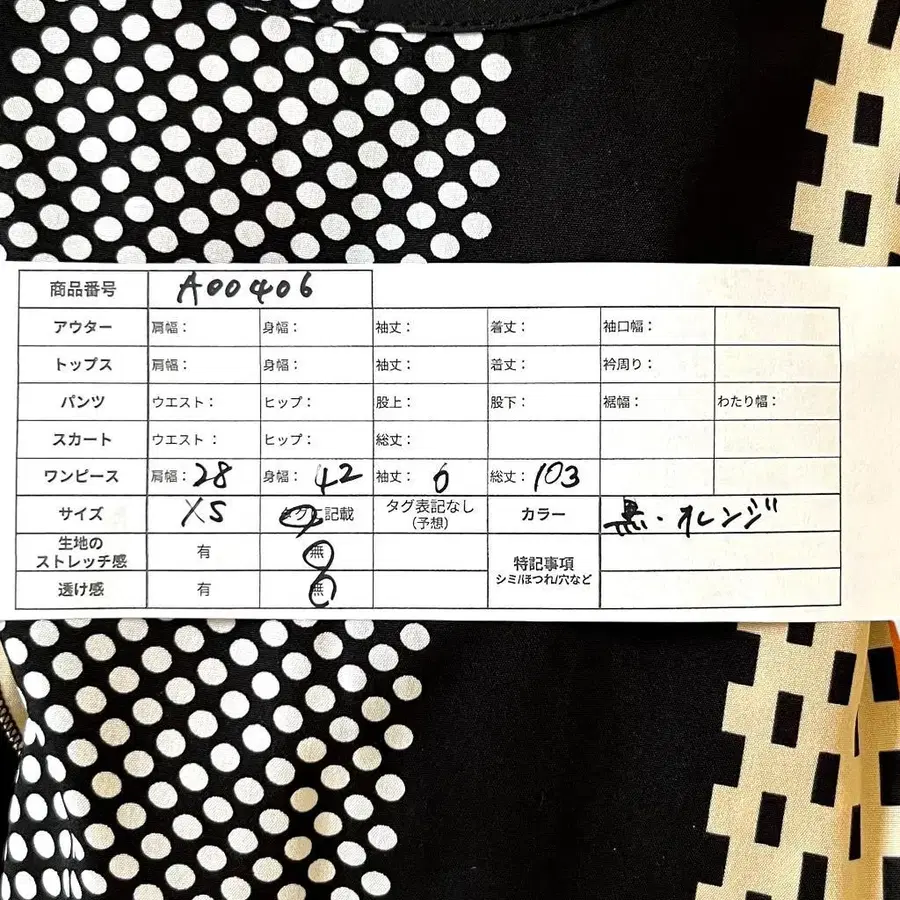 商品番号 A00406
アウター 肩幅： 身幅： 袖丈： 着丈： 袖口幅：
トップス 肩幅： 身幅： 袖丈： 着丈： 衿周り：
パンツ ウエスト： ヒップ： 股上： 股下： 裾幅： わたり幅：
スカート ウエスト： ヒップ： 総丈：
ワンピース 肩幅：28 身幅：42 袖丈：0 総丈：103
サイズ XS タグに記載 タグ表記なし カラー 黒・オレンジ
(予想)
生地の
ストレッチ感 有 無
特記事項
シミ/ほつれ/穴など
透け感 有 無